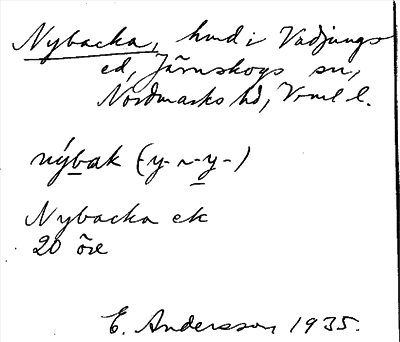 Nybacka, hmd i Vadjungs
ed, Järnskogs sn,
Nordmarks hd, Vrml l.
nýbak (-y- ~ -y-)
Nybacka ek
20 öre
E. Andersson 1935.